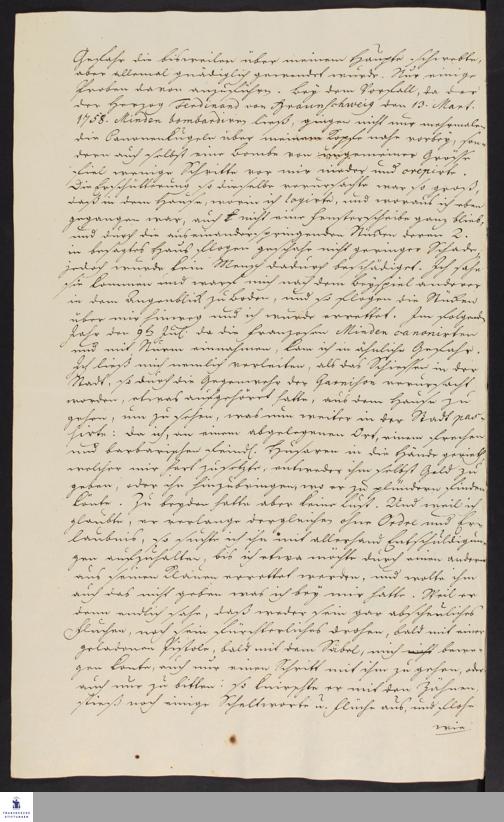 Gefahr die bisweilen über meinem Haupte schwebte,
aber allemal gnädiglich gewendet wurde. Nur einige
Proben davon anzuführen. Bey dem Vorfall, da der
der Herzog Ferdinand von Braunschweig den 13. Mart.
1758. Minden bombardiren ließ, gingen nicht nur mehrmalen
die Canonenkugeln über meinem Kopfe nahe vorbey, son-
dern auch selbst eine Bombe von ungemeiner Größe
fiel wenige Schritte vor mir nieder und crepirte.
Die Erschütterung so dieselbe verursachte war so groß,
daß in dem Hause, worin ich logirte, und woraus ich eben
gegangen war, auch nicht eine Fensterscheibe ganz blieb,
und durch die auseinanderspringenden Stücken deren 2.
in besagtes Haus flogen geschahe nicht geringer Schade,
jedoch wurde kein Mensch dadurch beschädiget. Ich sahe
sie kommen und warf mich nach dem Beyspiel anderer
in dem Augenblick zu Boden, und so flogen die Stücken
über mir hinweg und ich wurde errettet. Im folgenden
Jahr den 9t Jul. da die Franzosen Minden canonirten
und mit Sturm einnahmen, kam ich in ähnliche Gefahr.
Ich ließ mich nemlich verleiten, als das Schiessen in der
Stadt, so durch die Gegenwehr der Garnison verursacht
worden, etwas aufgehöret hatte, aus dem Hause zu
gehen, um zu sehen, was nun weiter in der Stadt pas-
sirte: da ich, an einem abgelegenen Ort, einem frechen
und barbarischen feindl. Husaren in die Hände gerieth,
welcher mir hart zusetzte, entweder ihm selbst Geld zu
geben, oder ihn hinzubringen, wo er zu plündern finden
könte. Zu beyden hatte aber keine Lust. Und weil ich
glaubte, er verlange dergleichen ohne Order und Er-
laubniß, so suchte ich ihn mit allerhand Entschuldigun-
gen aufzuhalten, bis ich etwa möchte durch einen andern
aus seinen Klauen errettet werden, und wolte ihm
auch das nicht geben was ich bey mir hatte. Weil er
denn endlich sahe, daß weder sein gar abscheuliches
Fluchen, noch sein fürchterliches Drohen, bald mit einer
geladenen Pistole, bald mit dem Säbel, mich bewe-
gen konte, auch nur einen Schritt mit ihm zu gehen, oder
auch nur zu bitten: so knirschte er mit den Zähnen,
stieß noch einige Scheltworte u. Flüche aus, und flohe
wie
FRANCKESCHE
STIFTUNGEN